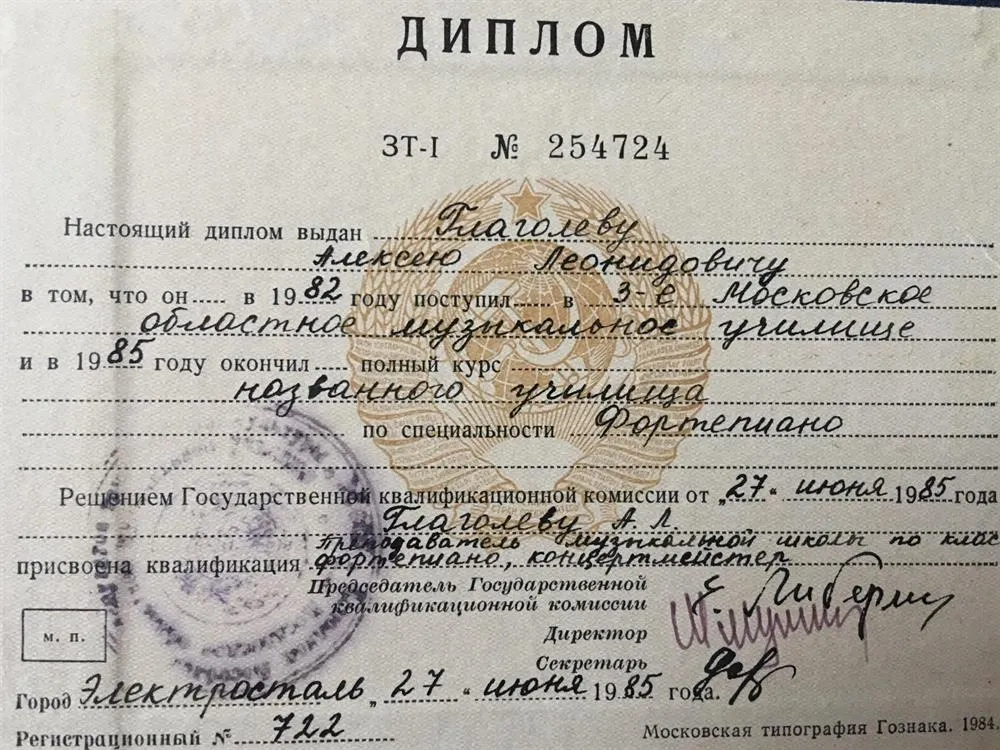 ДИПЛОМ
ЗТ-I № 254724
Настоящий диплом выдан Глаголеву
Алексею Леонидовичу
в том, что он в 1982 году поступил в 3-е Московское
областное музыкальное училище
и в 1985 году окончил полный курс
названного училища
по специальности Фортепиано
Решением Государственной квалификационной комиссии от „27“ июня 1985 года
Глаголеву А. Л.
Преподаватель музыкальной школы по клас
присвоена квалификация фортепиано, концертмейстер
Председатель Государственной
квалификационной комиссии
Директор
м. п.
Секретарь
Город Электросталь „27“ июня 1985 года.
Регистрационный № 722
Московская типография Гознака. 1984.